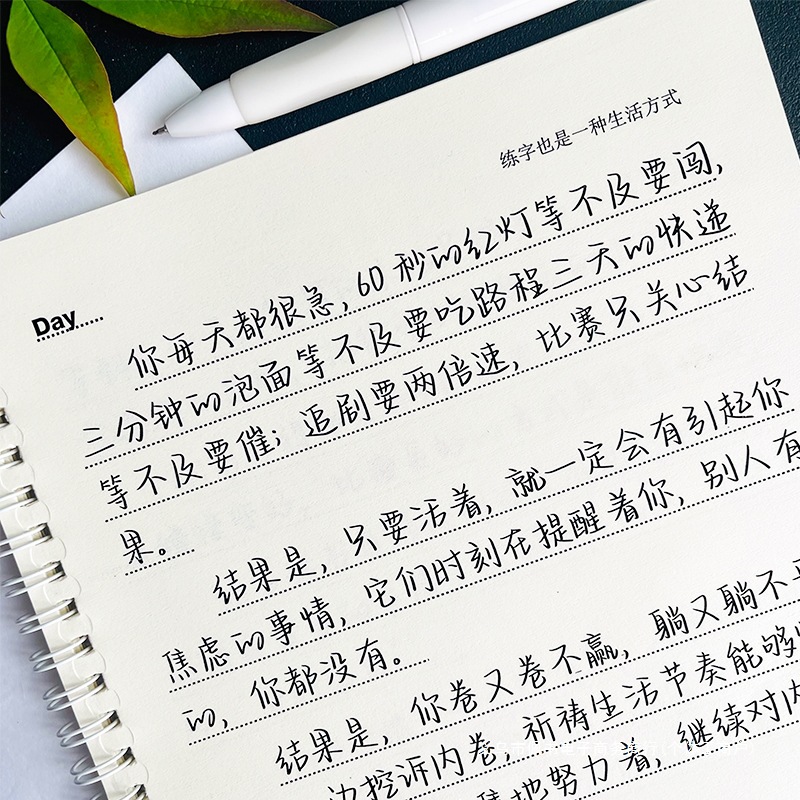 练字也是一种生活方式
Day......
你每天都很急，60秒的红灯等不及要闯，
三分钟的泡面等不及要吃路程三天的快递
等不及要催；追剧要两倍速，比赛只关心结
果。
结果是，只要活着，就一定会有引起你
焦虑的事情，它们时刻在提醒着你，别人有
的，你都没有。
结果是，你卷又卷不赢，躺又躺不
边控诉内卷，祈祷生活节奏能够
地努力着，继续对内